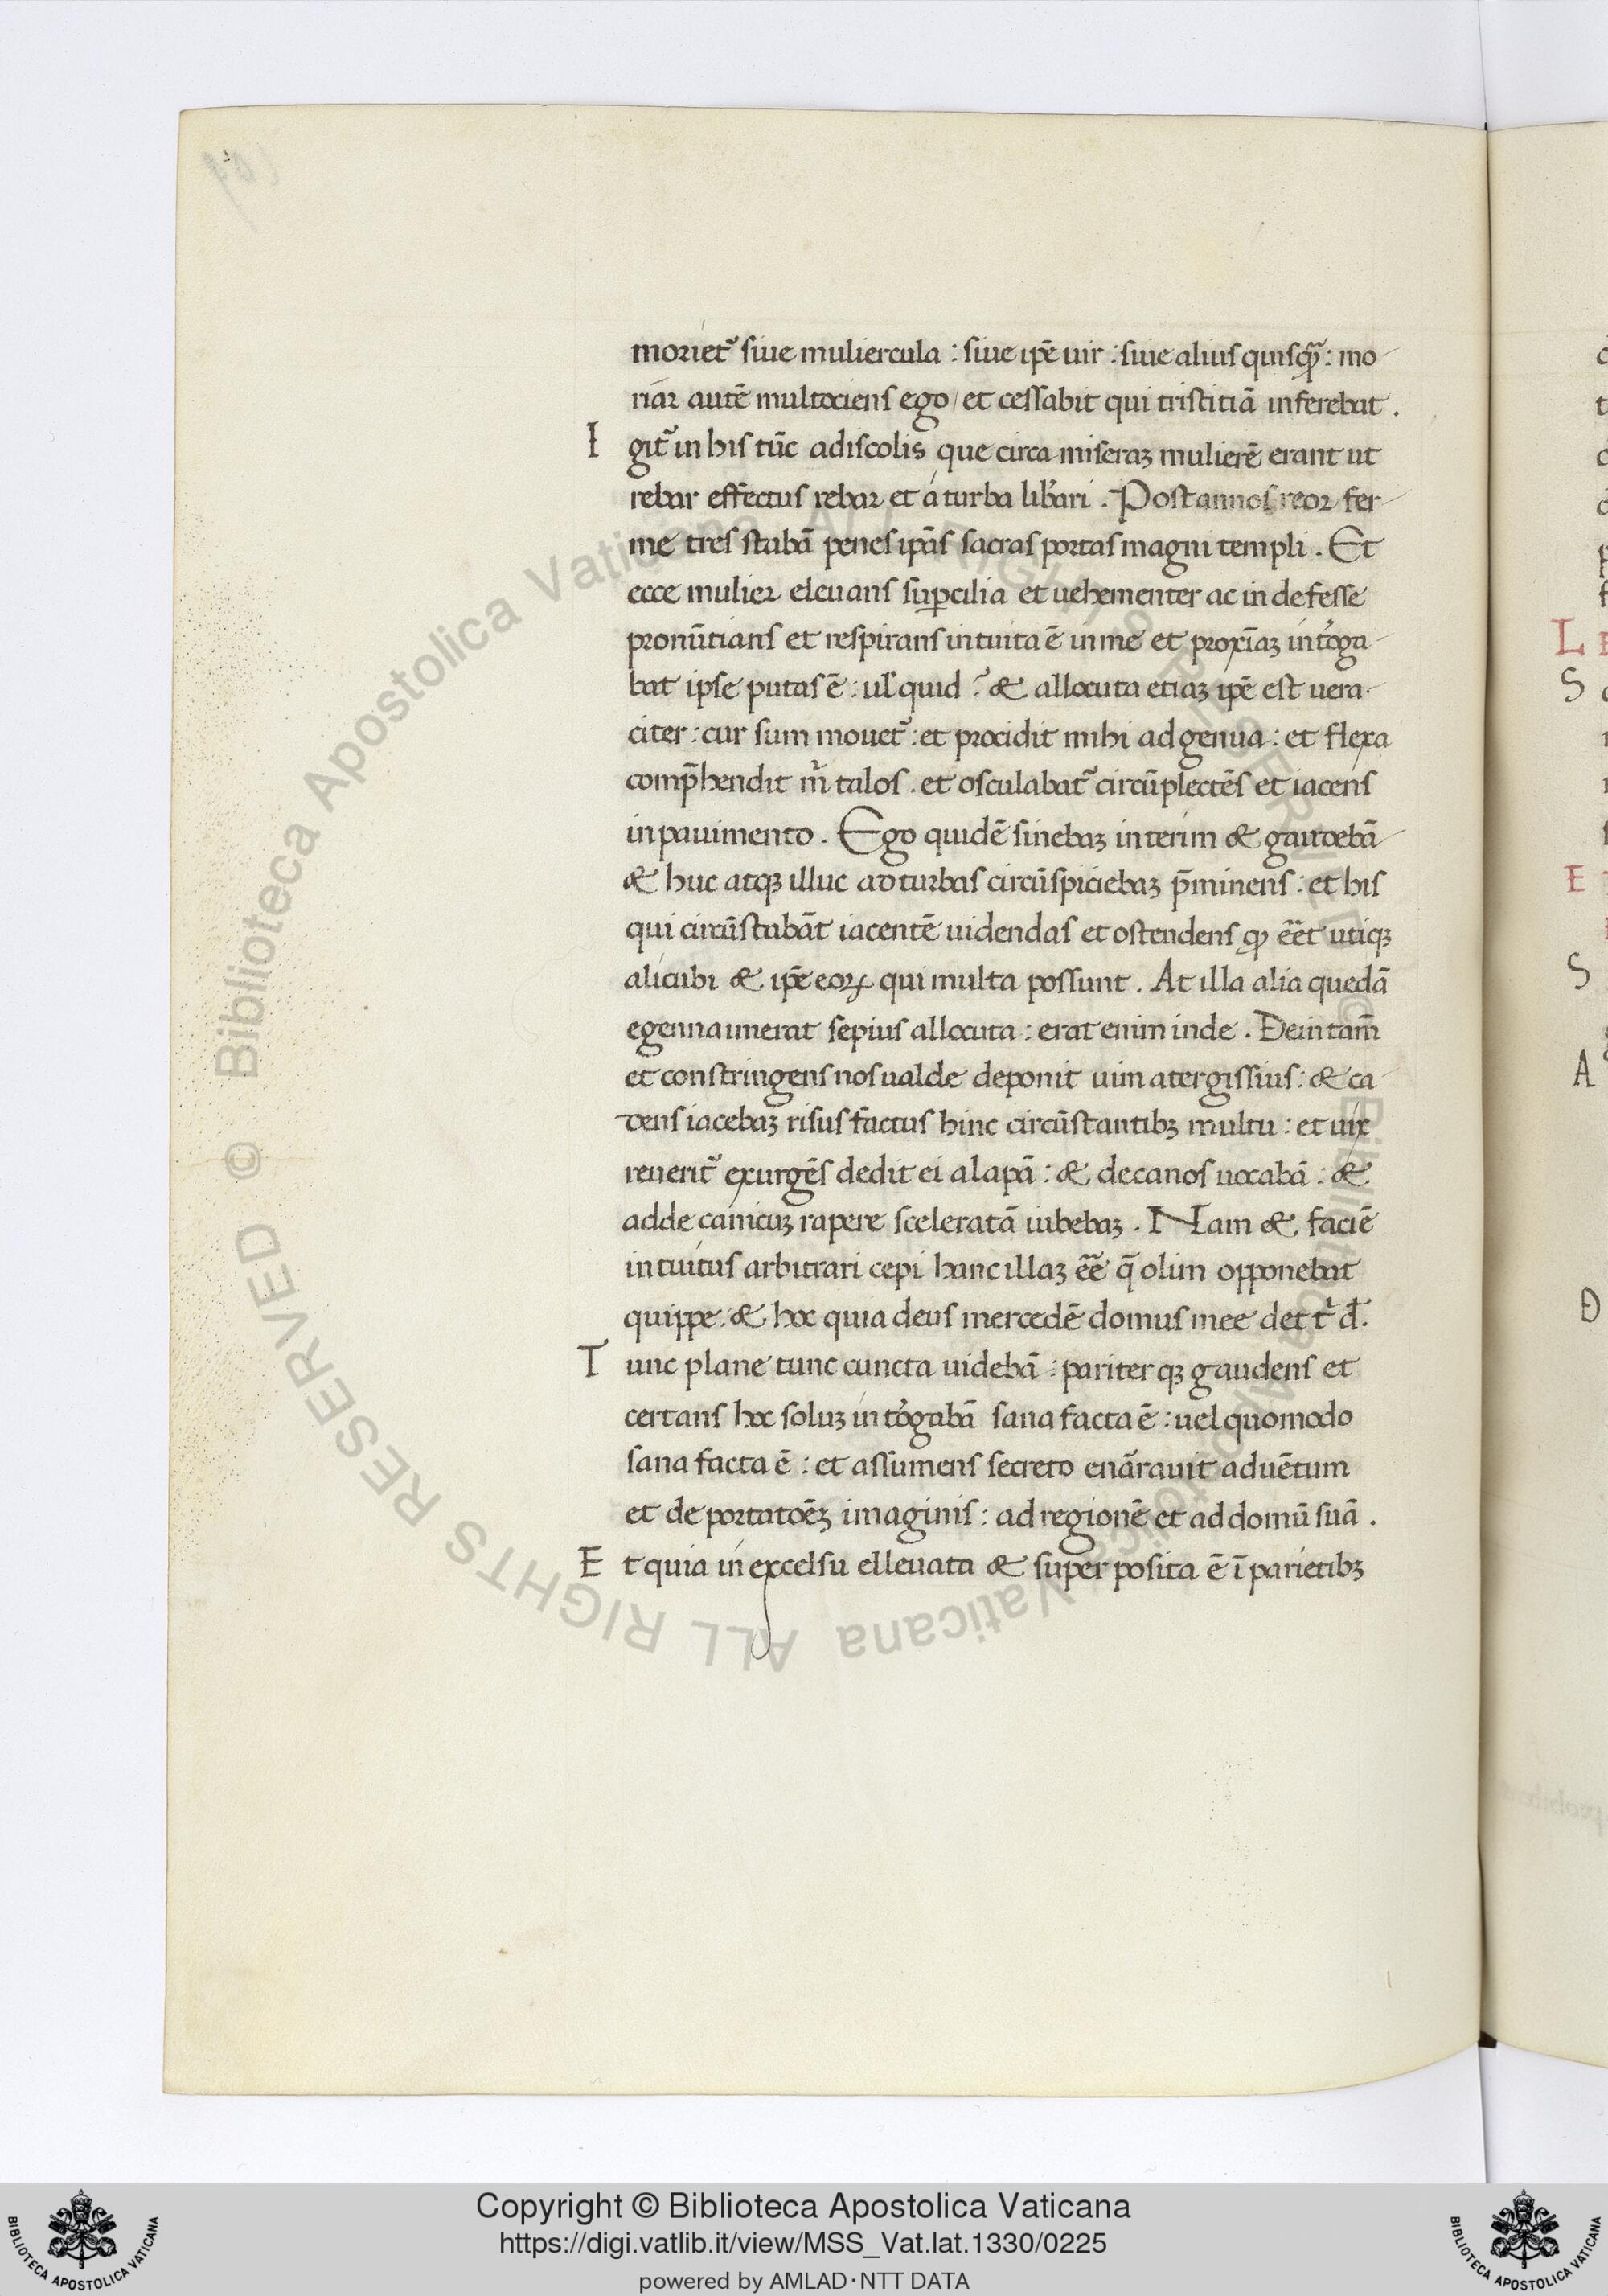 moriet᷑ siue muliercula : siue ip̄e uir : siue alius quisqᷓ : mo-
riar autē multociens ego / et cessabit qui tristitiā inferebat .
I git᷑ in his tūc adiscolis que circa miseraꝫ mulierē erant ut
rebar effectus rebar et a turba lib̄ari . Post annos reor fer-
me tres stabā penes ip̄as sacras portas magni templi . Et
ecce mulier eleuans suꝑcilia et uehementer ac indefesse
pronūtians et respirans intuita ē in me et proxīaꝫ int̓oga-
bat ipse putas ē : ul̓ quid ? & allocuta etiaꝫ ip̄e est uera-
citer : cur sum mouet᷑ : et procidit mihi ad genua : et flexa
comp̄hendit m̓ talos . et osculabat᷑ circūplectēs et iacens
in pauimento . Ego quidē sinebaꝫ interim & gaudebā
& huc atqꝫ illuc ad turbas circūspiciebaꝫ p̄minens : et his
qui circūstabāt iacentē uidendas et ostendens ꝙ ēēt utiqꝫ
alicubi & ip̄e eoꝝ qui multa possunt . At illa alia quedā
egennaunerat sepius allocuta : erat enim inde . Dein tam̄
et constringens nos ualde deponit uim atergissius : & ca-
dens iacebaꝫ risus factus hinc circūstantibꝫ multu : et uix
reuerit᷑ exurgēs dedit ei alapā : & decanos uocabā : &
adde canicuꝫ rapere sceleratā iubebaꝫ . Nam & faciē
intuitus arbitrari cepi hanc illaꝫ ēē q̄ olim opponebat
quippe : & hoc quia deus mercedē domus mee det t̓ d̄.
T unc plane tunc cuncta uidebā : pariterqꝫ gaudens et
certans hoc soluꝫ int̓ogabā sana facta ē : uel quomodo
sana facta ē : et assumens secreto enārauit aduētum
et deportatōēꝫ imaginis : ad regionē et ad domū suā .
E t quia in excelsu elleuata & superposita ē ī parietibꝫ
L
S
E
S
A
D
Copyright © Biblioteca Apostolica Vaticana
https://digi.vatlib.it/view/MSS_Vat.lat.1330/0225
powered by AMLAD·NTT DATA
BIBLIOTECA APOSTOLICA VATICANA
BIBLIOTECA APOSTOLICA VATICANA
© Biblioteca Apostolica Vaticana ALL RIGHTS RESERVED © Biblioteca Apostolica Vaticana ALL RIGHTS RESERVED